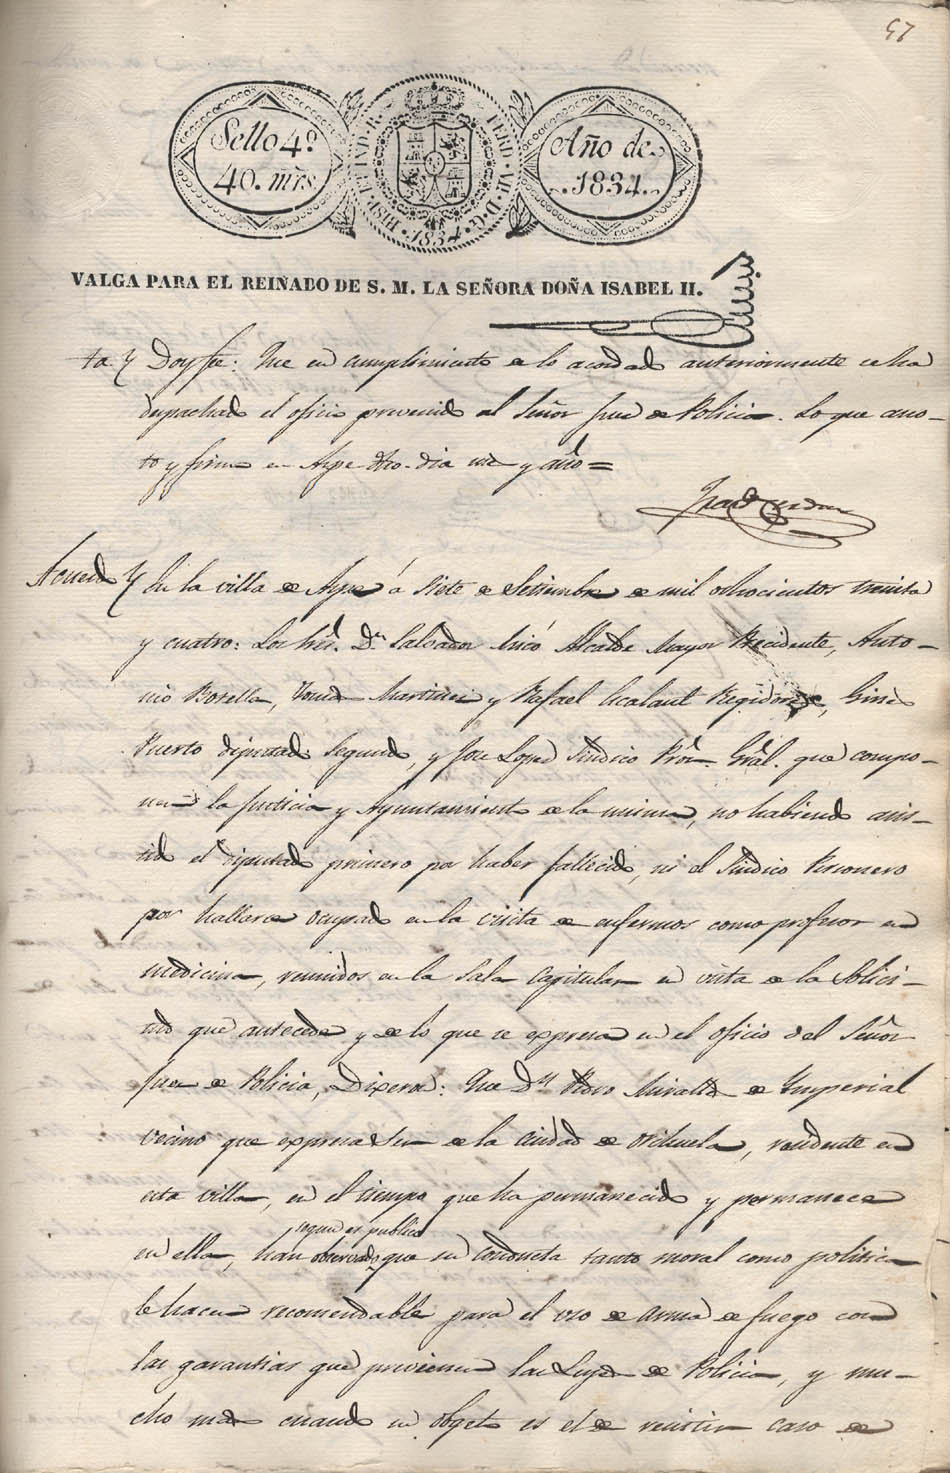 57
Sello 4º
40. mrs.
HISP. ET IND. R. FERD. VII. D. G. 1834.
Año de
1834.
VALGA PARA EL REINADO DE S. M. LA SEÑORA DOÑA ISABEL II.
Doy fe: Que en cumplimiento de lo acordado anteriormente se ha
despachado el oficio prevenido al Señor Juez de Policia. Lo que ano-
to y firmo en Aspe dho. dia mes y año=
Acuerdo En la villa de Aspe á siete de Setiembre de mil ochocientos treinta
y cuatro: Los Sres. Dn. Salvador Micó Alcalde Mayor Precidente, Anto-
nio Botella, Tomas Martinez y Rafael Alcalant Regidores, Gines
Puerto diputado Segundo, y Jose Lopez Sindico Pror. Gral. que compo-
nen la Justicia y Ayuntamiento de la misma, no habiendo asis-
tido el Diputado primero por haber fallecido, ni el Sindico Personero
por hallarse ocupado en la visita de enfermos como profesor en
medicina, reunidos en la Sala Capitular en vista de la Solici-
tud que antecede y de lo que se expresa en el oficio del Señor
Juez de Policia, Dixeron: Que Dn. Pedro Miralles de Imperial
vecino que expresa Ser de la ciudad de Orihuela, residente en
esta villa, en el tiempo que ha permanecido y permanece
segun es publico
en ella, han observado que su conducta tanto moral como politica
le hacen recomendable para el uso de armas de fuego con
las garantias que previenen las Leyes de Policia, y mu-
cho mas cuando su obgeto es el de resistir caso de